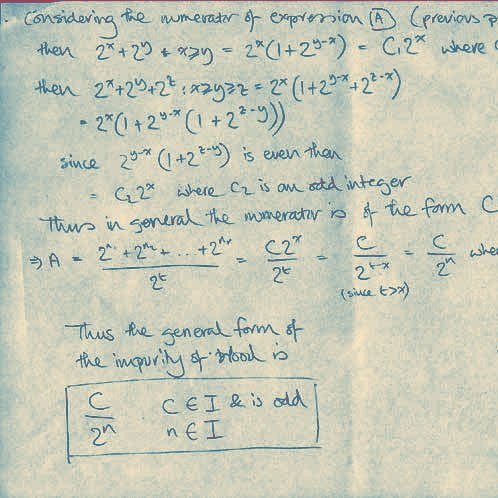 Considering the numerator of expression (A) (previous p
then 2^x + 2^y : x≥y = 2^x(1+2^{y-x}) = C₁2^x where
then 2^x+2^y+2^z : x≥y≥z = 2^x(1+2^{y-x}+2^{z-x})
= 2^x(1+2^{y-x}(1+2^{z-y}))
since 2^{y-x}(1+2^{z-y}) is even then
= C₂2^x where C₂ is an odd integer
Thus in general the numerator is of the form C
⇒ A = (2^{n₁} + 2^{n₂} + ... + 2^{nᵣ})/2^t = C2^x/2^t = C/2^{t-x} = C/2^n whe
(since t>x)
Thus the general form of
the impurity of blood is
C/2^n C ∈ I & is odd
n ∈ I